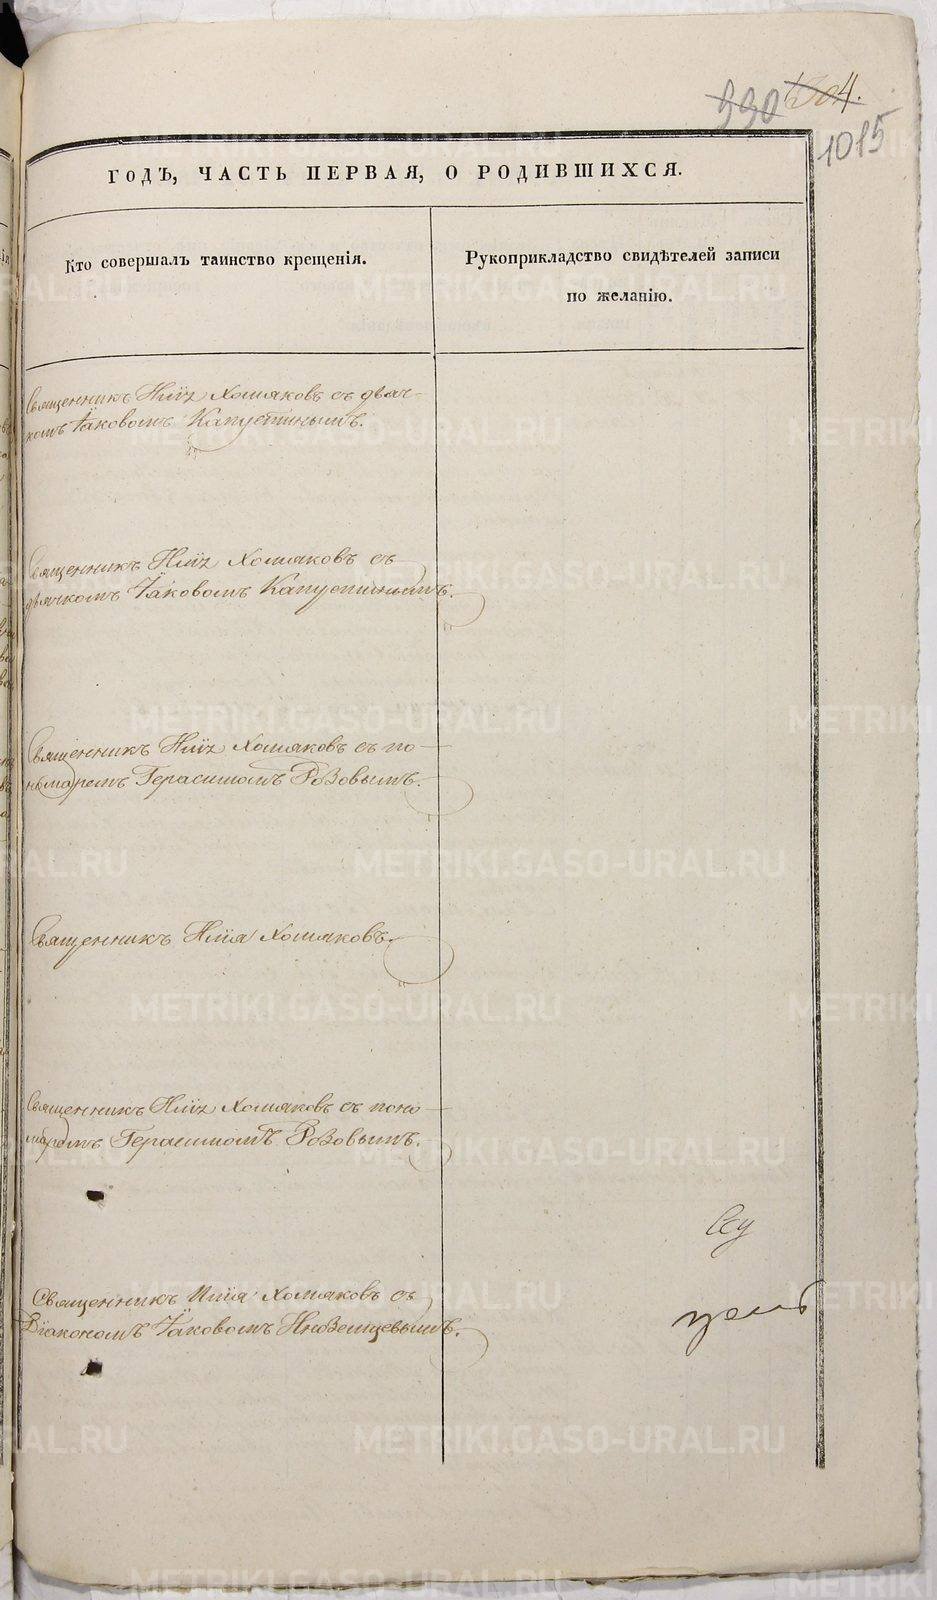 990 1304.
1015
ГОДЪ, ЧАСТЬ ПЕРВАЯ, О РОДИВШИХСЯ.
Кто совершалъ таинство крещенія.
Рукоприкладство свидѣтелей записи
по желанію.
Священникъ Илїа Хомяковъ съ дьяч-
комъ Їаковомъ Капустинымъ.
Священникъ Илїа Хомяковъ съ
дьячкомъ Їаковомъ Капустинымъ.
Священникъ Илїа Хомяковъ съ по-
номаремъ Герасимомъ Розовымъ.
Священникъ Илїа Хомяковъ.
Священникъ Илїа Хомяковъ съ поно-
маремъ Герасимомъ Розовымъ.
Священникъ Илїа Хомяковъ съ
Дїакономъ Їаковомъ Иноземцевымъ.
METRIKI.GASO-URAL.RU